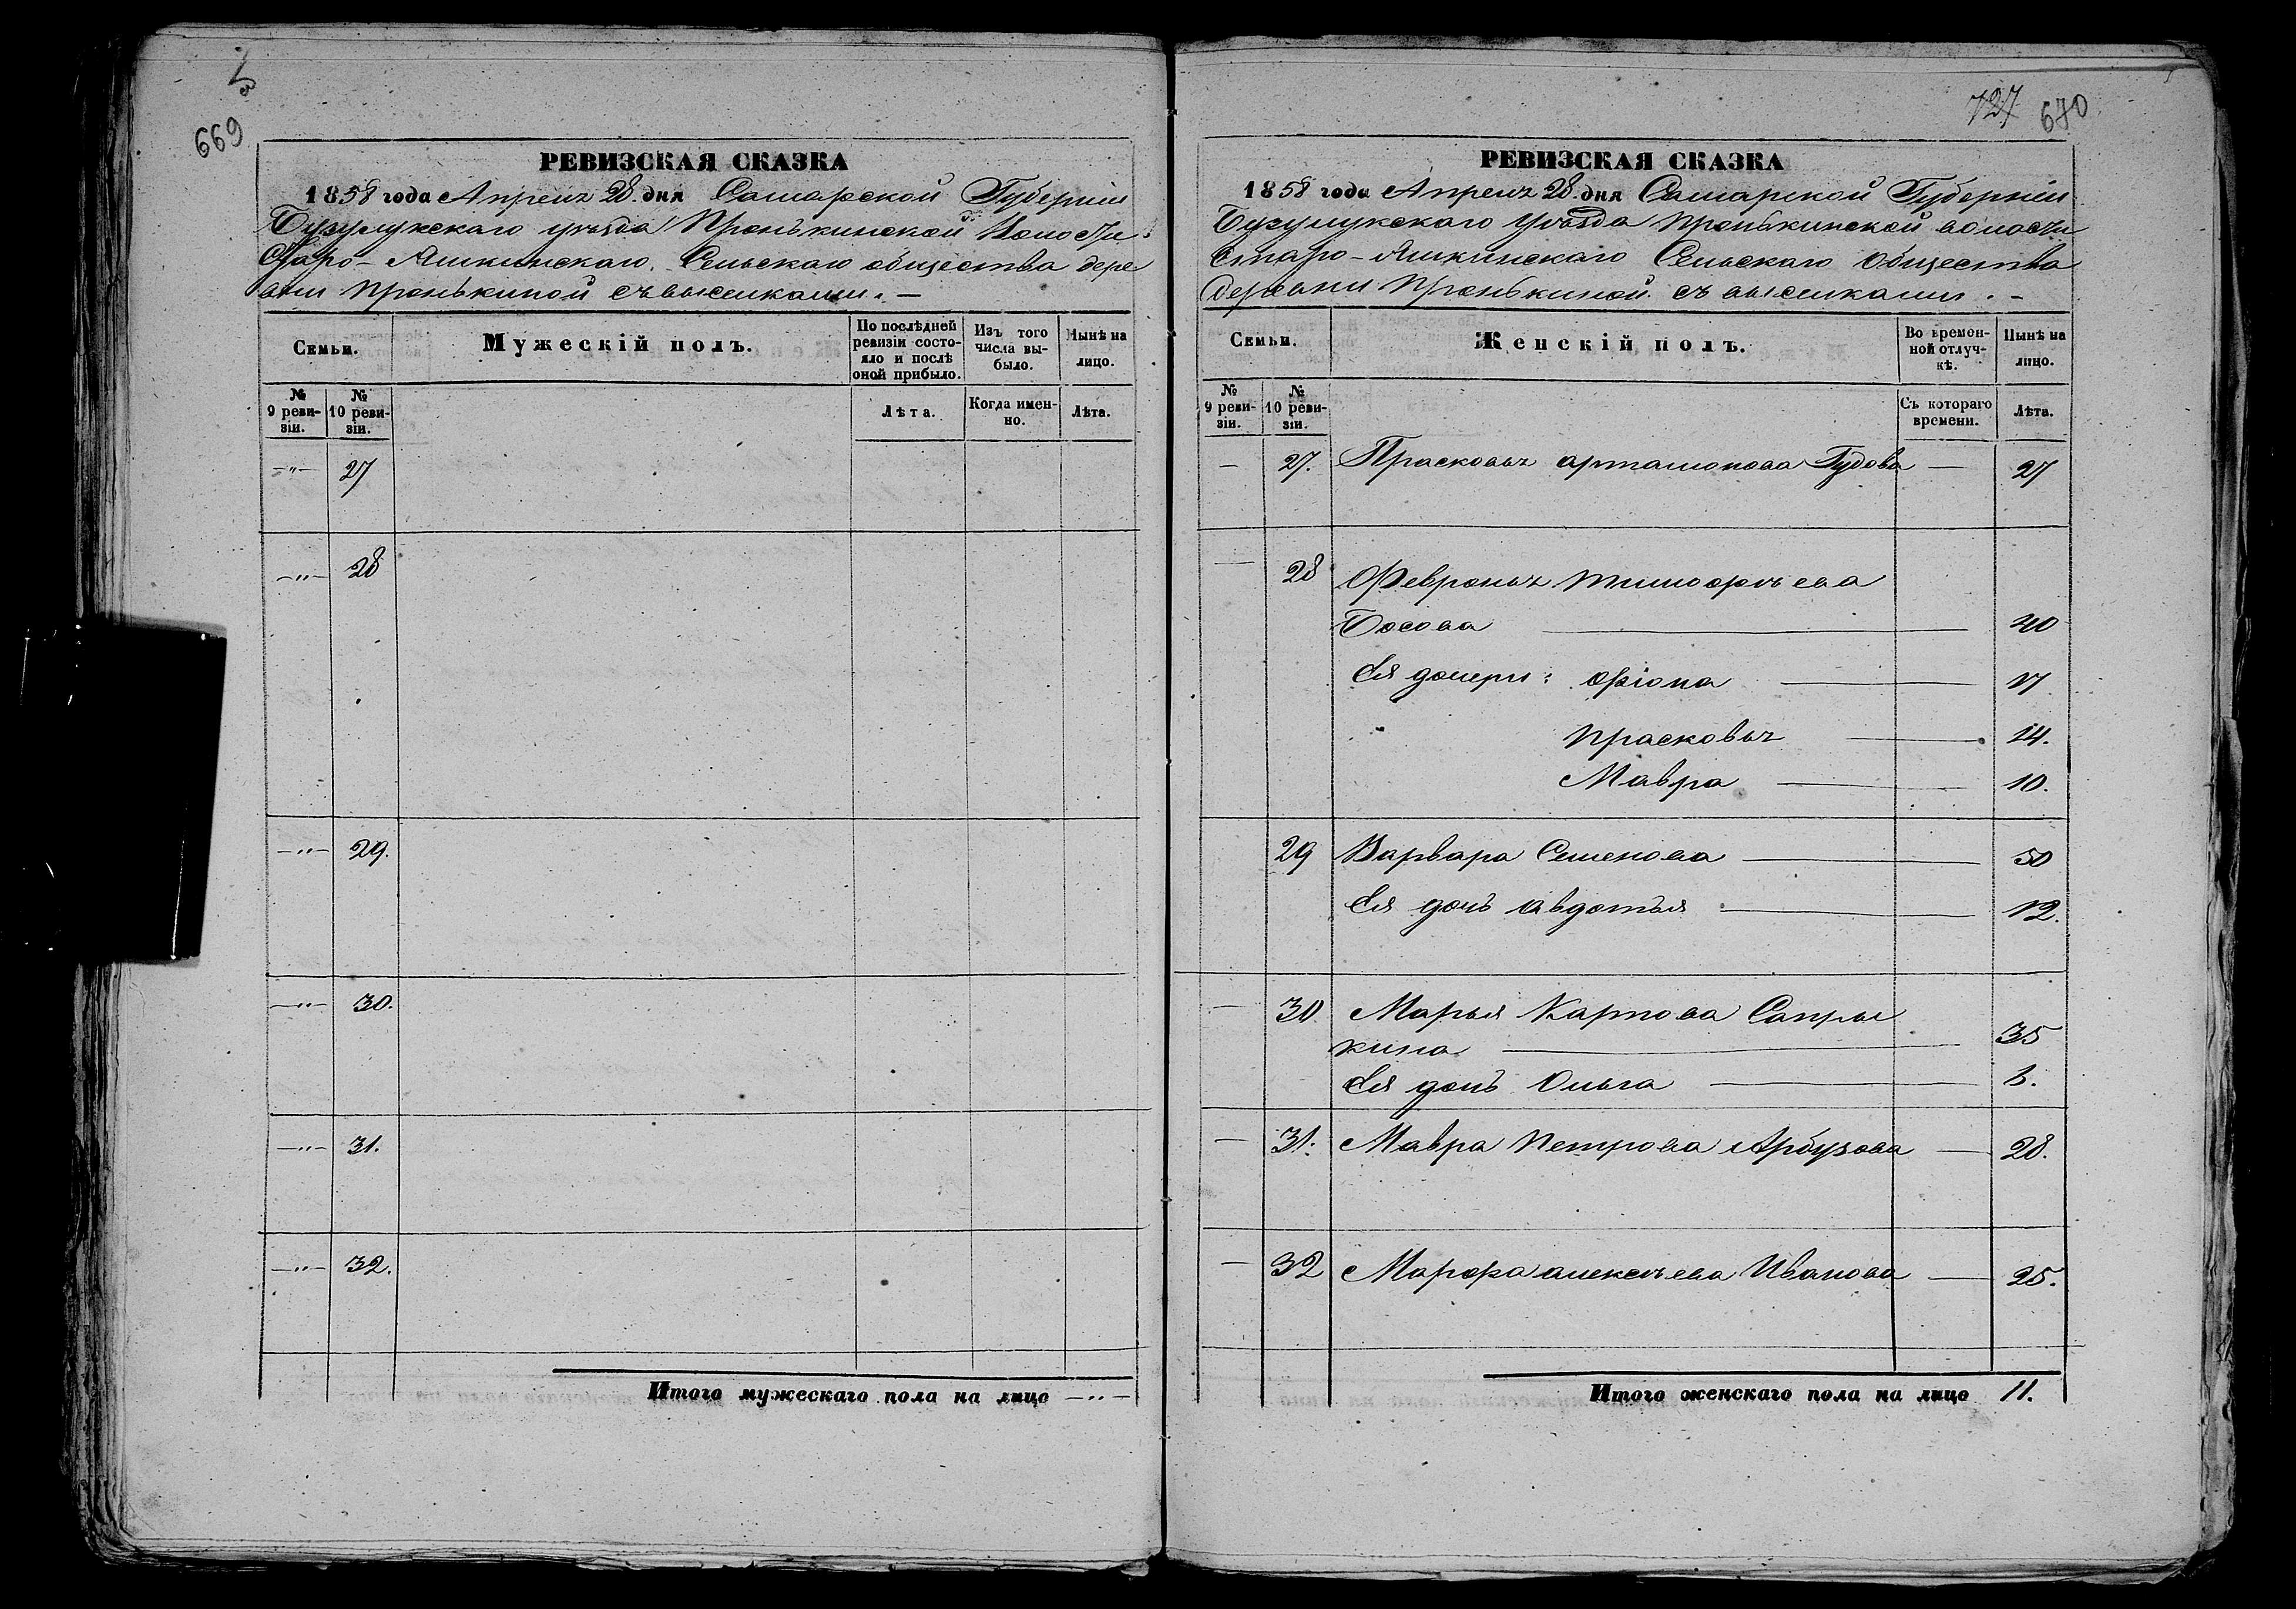 669
РЕВИЗСКАЯ СКАЗКА
1858 года Апреля 28 дня Самарской Губерніи
Бузулукскаго уѣзда Пронькинской Волости
Старо-Ашкинскаго Сельскаго общества дере
вни Пронькиной съ выселками. —
Семьи.
Мужескій полъ.
По послѣдней ревизіи состояло и послѣ оной прибыло.
Изъ того числа выбыло.
Нынѣ на лицо.
№ 9 ревизіи.
№ 10 ревизіи.
Лѣта.
Когда именно.
Лѣта.
—"— 27
—"— 28
—"— 29.
—"— 30.
—"— 31.
—"— 32.
Итого мужескаго пола на лицо —"—
727 670
РЕВИЗСКАЯ СКАЗКА
1858 года Апреля 28 дня Самарской Губерніи
Бузулукскаго Уѣзда Пронькинской волости
Старо-Ашкинскаго Сельскаго Общества
Деревни Пронькиной съ выселками. —
Семьи.
Женскій полъ.
Во временной отлучкѣ.
Нынѣ на лицо.
№ 9 ревизіи.
№ 10 ревизіи.
Съ котораго времени.
Лѣта.
— 27. Прасковья Артамонова Гудова — 27
— 28 Февронья Тимофѣева
Босова — 40
Ея дочери: Фіона — 17
Прасковья — 14.
Мавра — 10.
29 Варвара Семенова — 50
Ея дочь Авдотья — 12.
— 30 Марья Карпова Сапры
кина — 35
Ея дочь Ольга —
— 31. Мавра Петрова Арбузова — 28.
— 32 Марфа Алексѣева Иванова — 25.
Итого женскаго пола на лицо 11.